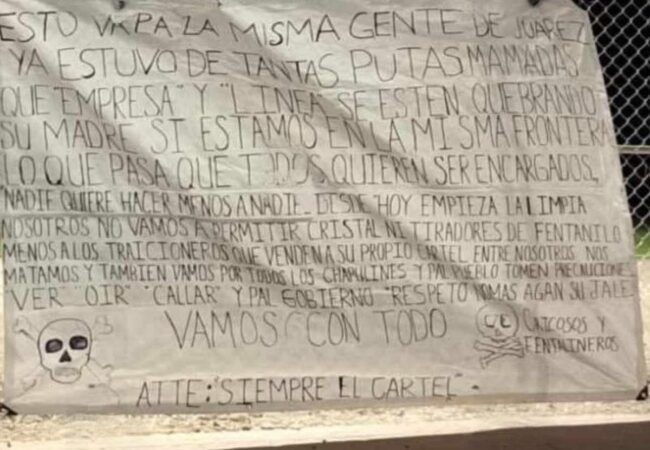 ESTO VA PA LA MISMA GENTE DE JUAREZ
YA ESTUVO DE TANTAS PUTAS MAMADAS
QUE "EMPRESA" Y "LINEA SE ESTEN QUEBRANDO
SU MADRE SI ESTAMOS EN LA MISMA FRONTERA
LO QUE PASA QUE TODOS QUIEREN SER ENCARGADOS,
"NADIE QUIERE HACER MENOS A NADIE. DESDE HOY EMPIEZA LA LIMPIA
NOSOTROS NO VAMOS A PERMITIR CRISTAL NI TIRADORES DE FENTANILO
MENOS A LOS TRAICIONEROS QUE VENDEN A SU PROPIO CARTEL ENTRE NOSOTROS NOS
MATAMOS Y TAMBIEN VAMOS POR TODOS LOS CHAPULINES Y PAL PUEBLO TOMEN PRECAUCIONES
VER" "OIR" "CALLAR" Y PAL GOBIERNO "RESPETO NOMAS AGAN SU JALE
VAMOS CON TODO
Y
FENTALINEROS
ATTE: "SIEMPRE EL CARTEL".